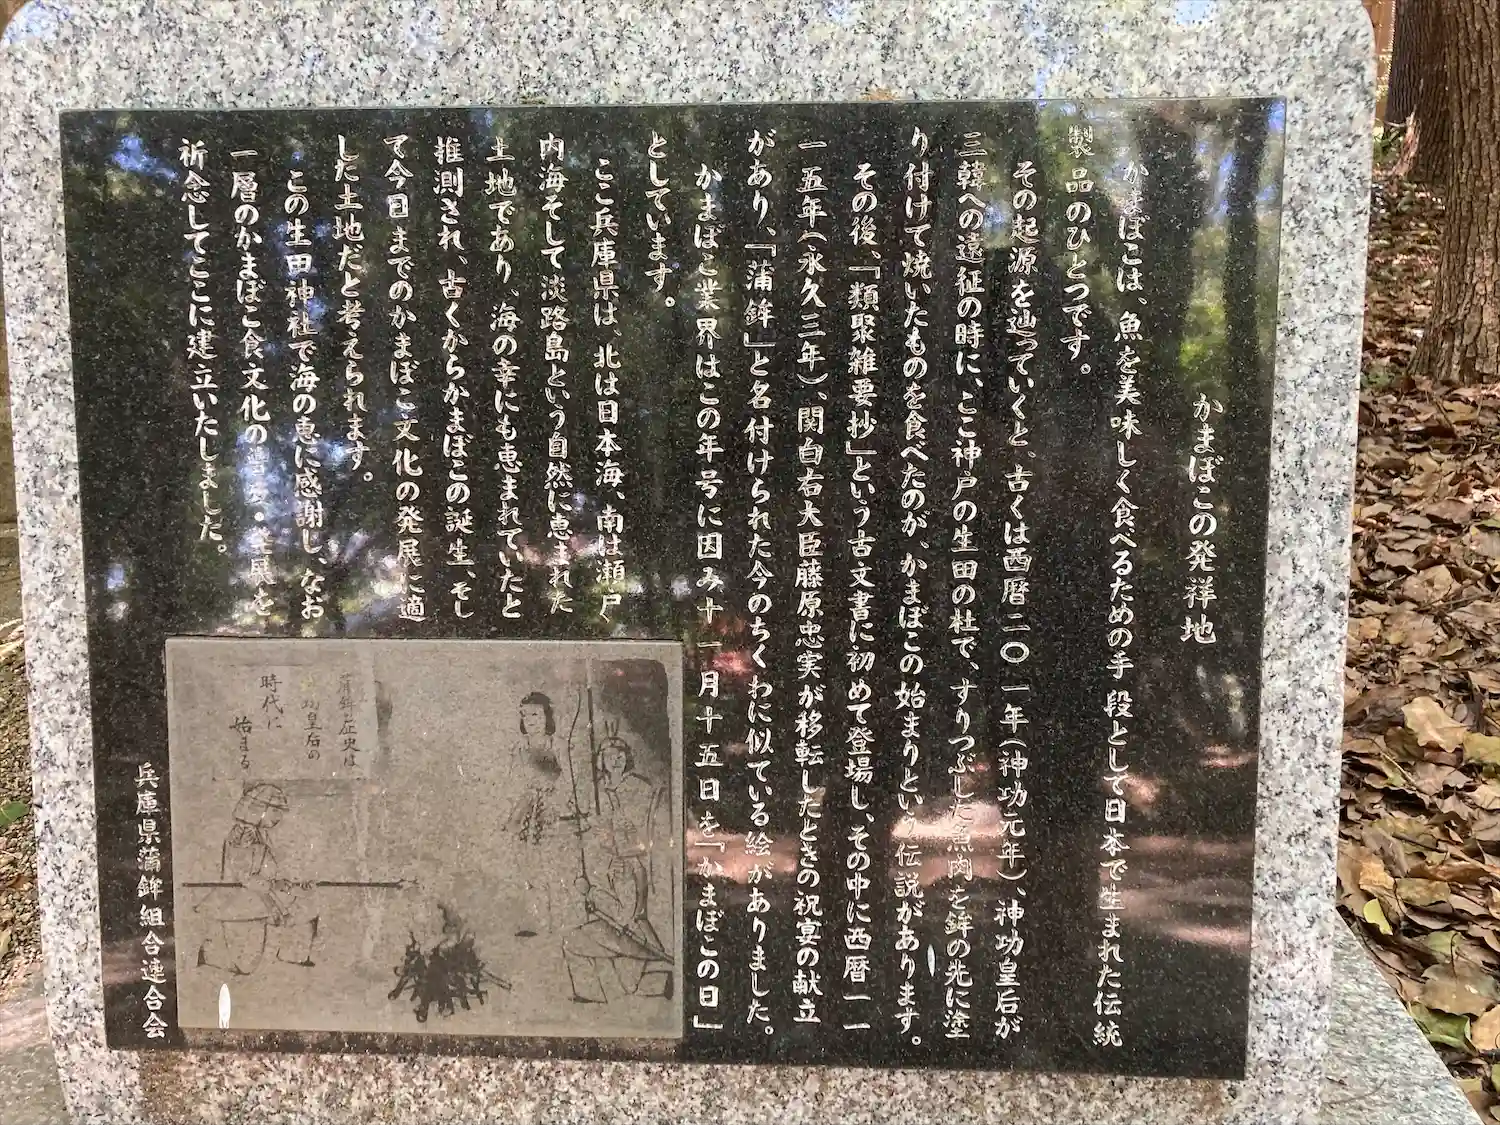 かまぼこの発祥地
かまぼこは、魚を美味しく食べるための手段として日本で生まれた伝統
製品のひとつです。
その起源を辿っていくと、古くは西暦二〇一年(神功元年)、神功皇后が
三韓への遠征の時に、ここ神戸の生田の杜で、すりつぶした魚肉を鉾の先に塗
り付けて焼いたものを食べたのが、かまぼこの始まりという伝説があります。
その後、『類聚雑要抄』という古文書に初めて登場し、その中に西暦一一
一五年(永久三年)、関白右大臣藤原忠実が移転したときの祝宴の献立
があり、『蒲鉾』と名付けられた今のちくわに似ている絵がありました。
かまぼこ業界はこの年号に因み十一月十五日を『かまぼこの日』
としています。
ここ兵庫県は、北は日本海、南は瀬戸
内海そして淡路島という自然に恵まれた
土地であり、海の幸にも恵まれていたと
推測され、古くからかまぼこの誕生、そし
て今日までのかまぼこ文化の発展に適
した土地だと考えられます。
この生田神社で海の恵に感謝し、なお
一層のかまぼこ食文化の・発展を
祈念してここに建立いたしました。
蒲鉾の歴史は
神功皇后の
時代に
始まる
兵庫県蒲鉾組合連合会